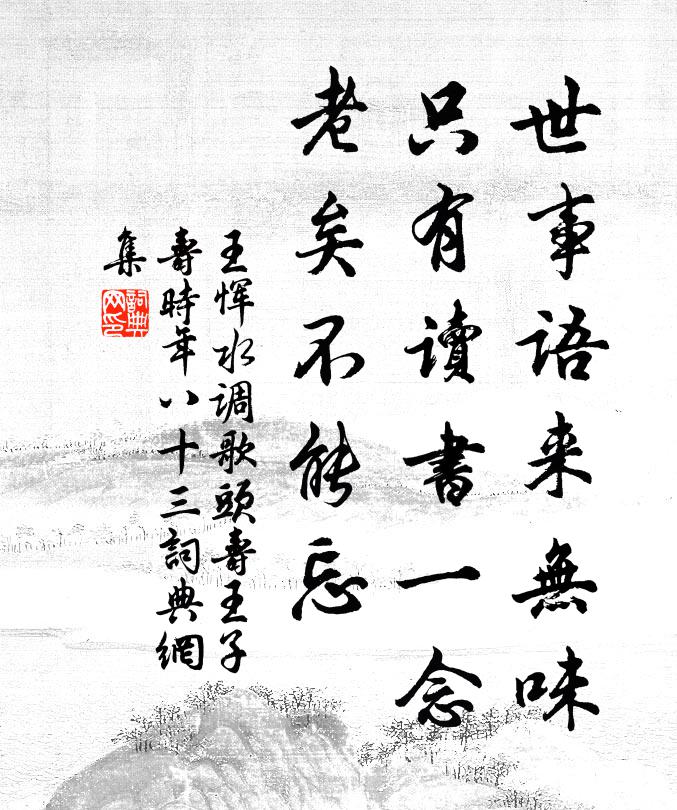 世事語来無味
只有讀書一念
老矣不能忘
王惲水调歌頭壽王子
壽時年八十三詞典網
集
詞典网印